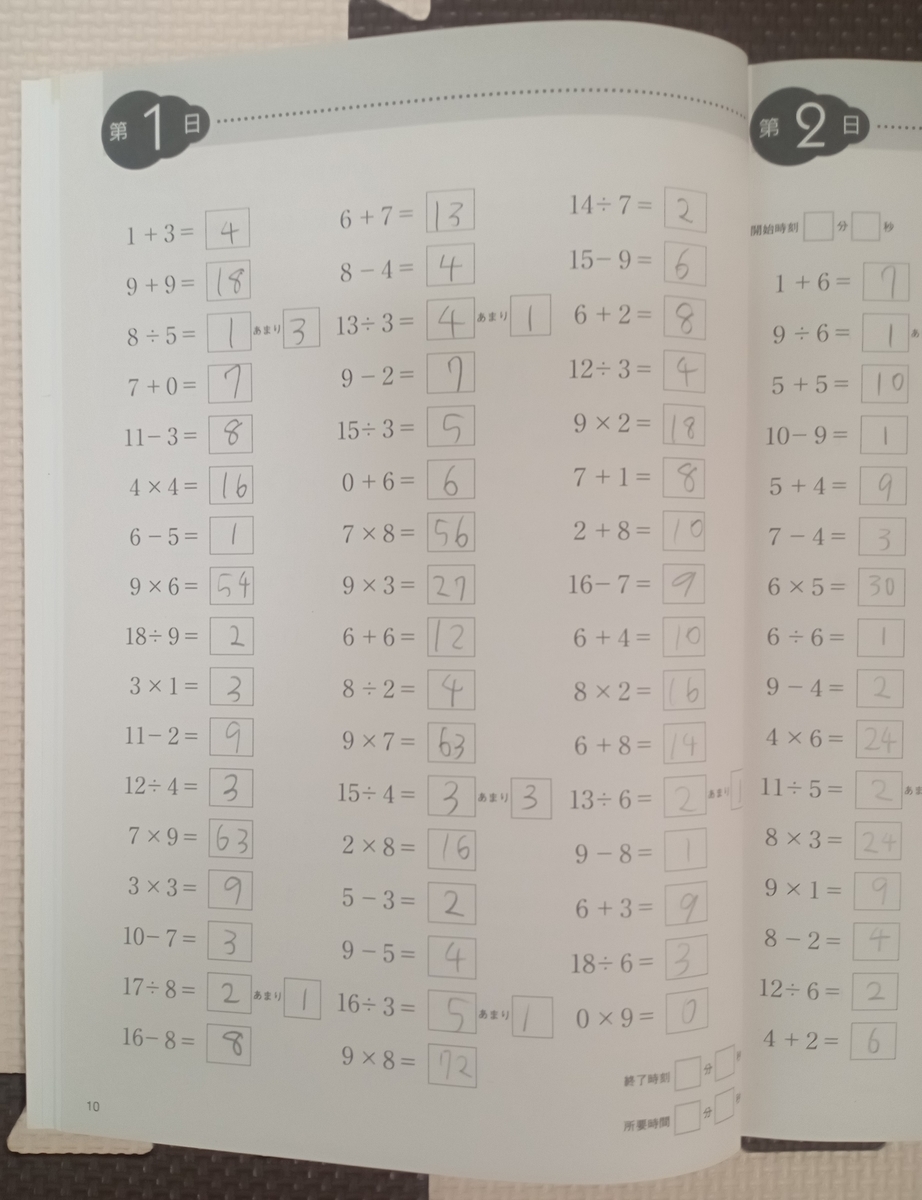 第1日
1+3= 4
9+9= 18
8÷5= 1 あまり 3
7+0= 7
11-3= 8
4×4= 16
6-5= 1
9×6= 54
18÷9= 2
3×1= 3
11-2= 9
12÷4= 3
7×9= 63
3×3= 9
10-7= 3
17÷8= 2 あまり 1
16-8= 8
6+7= 13
8-4= 4
13÷3= 4 あまり 1
9-2= 7
15÷3= 5
0+6= 6
7×8= 56
9×3= 27
6+6= 12
8÷2= 4
9×7= 63
15÷4= 3 あまり 3
2×8= 16
5-3= 2
9-5= 4
16÷3= 5 あまり 1
9×8= 72
14÷7= 2
15-9= 6
6+2= 8
12÷3= 4
9×2= 18
7+1= 8
2+8= 10
16-7= 9
6+4= 10
8×2= 16
6+8= 14
13÷6= 2 あまり 1
9-8= 1
6+3= 9
18÷6= 3
0×9= 0
終了時刻 分
所要時間 分
10
第2日
開始時刻 分 秒
1+6= 7
9÷6= 1 あ
5+5= 10
10-9= 1
5+4= 9
7-4= 3
6×5= 30
6÷6= 1
9-4= 2
4×6= 24
11÷5= 2 あま
8×3= 24
9×1= 9
8-2= 4
12÷6= 2
4+2= 6